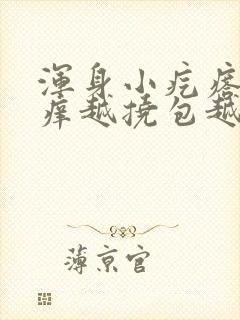 浑身小疙瘩
痒越挠包越
薄京官